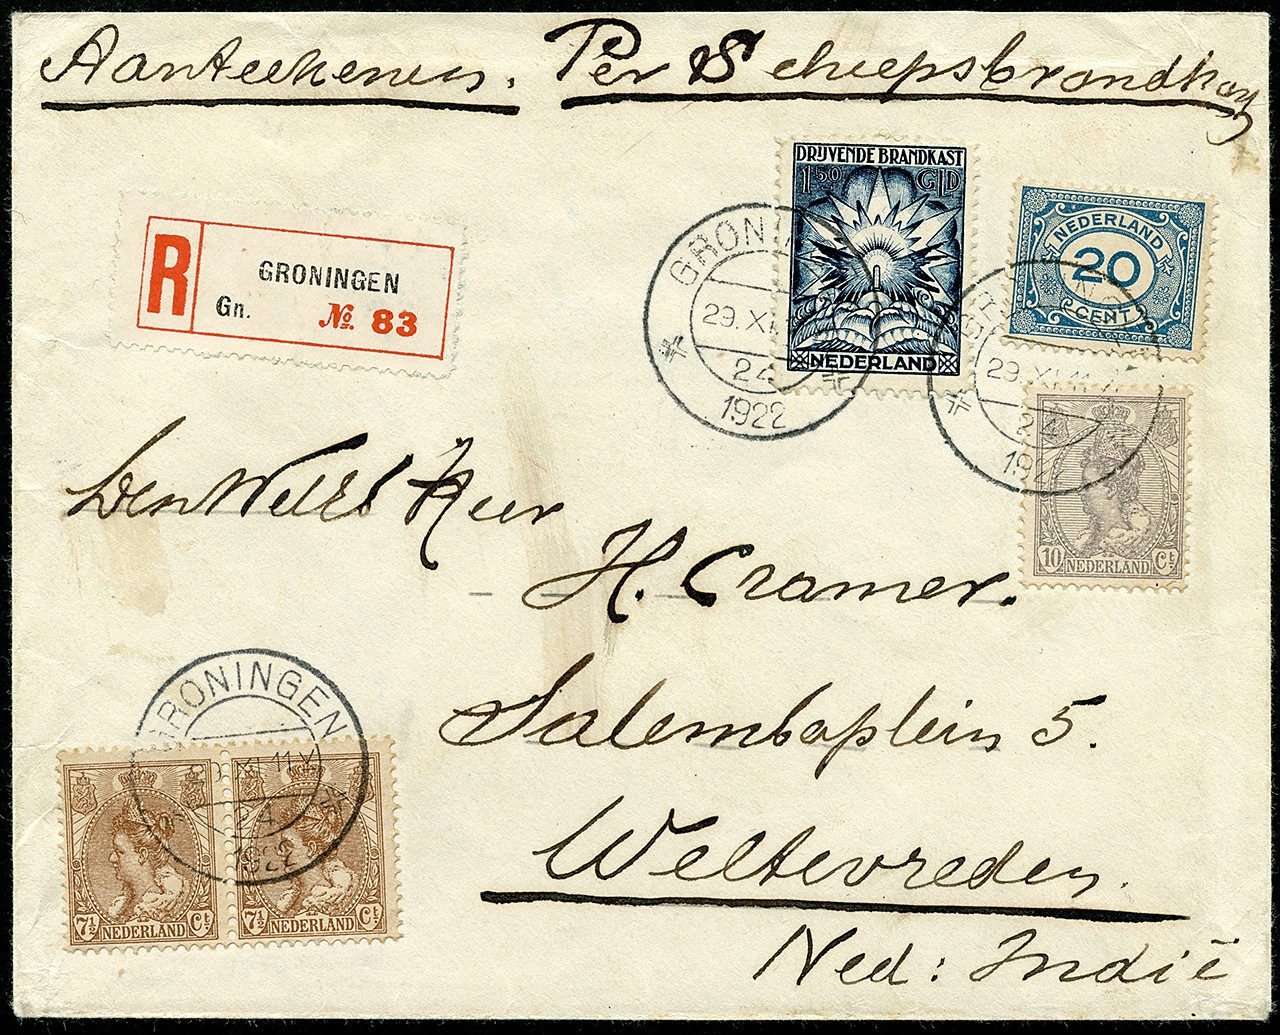 Aanteekenen. Per Scheepsbrandkast
DRIJVENDE BRANDKAST
1.50 GLD
NEDERLAND
NEDERLAND
20
CENT
R
GRONINGEN
Gn. No. 83
GRONINGEN
29.XI
24
1922
29.XI.11
24
1922
10 NEDERLAND Ct
Den WelEd Heer
H. Cramer.
Salembaplein 5.
Weltevreden.
Ned: Indië
GRONINGEN
XI.11 V
24
1922
7½ NEDERLAND Ct
7½ NEDERLAND Ct